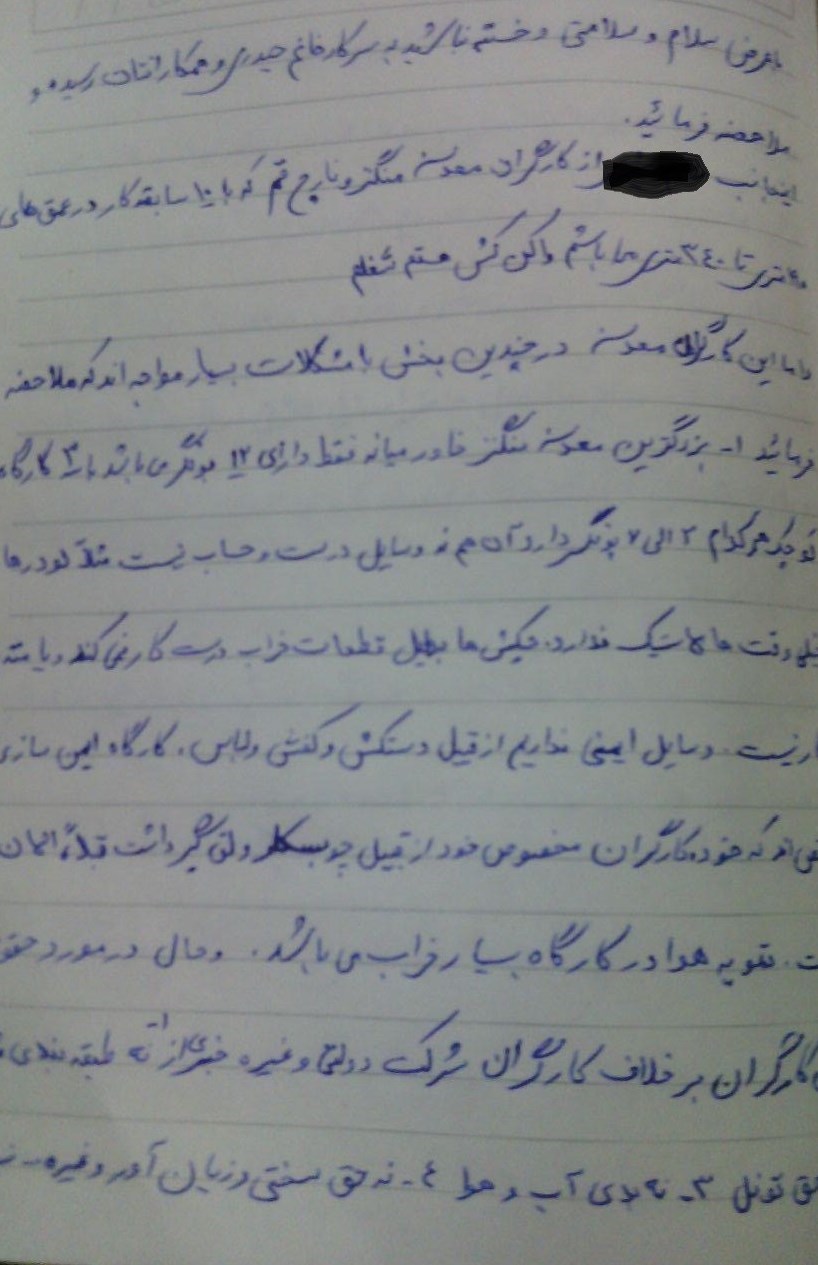 باعرض سلام و سلامتی و خسته نباشید به سرکار خانم حیدری و همکارانتان رسیده و
ملاحضه فرمائید.
اینجانب از کارگران معدن منگنز ونارچ قم که با ۱۰ سابقه کار در عمق های
متری تا ۳۴۰ متری می باشم واگن کش هستم شغلم
واما این کارگران معدن در چندین بخش با مشکلات بسیار مواجه اند که ملاحضه
فرمائید ۱- بزرگترین معدن منگنز خاورمیانه فقط دارای ۱۲ پونگر می باشد با ۳ کارگاه
کوچک هرکدام ۲ الی ۷ پونگر دارد آن هم نه وسایل درست و حساب نیست مثلاً لودرها
خیلی وقت ها لاستیک ندارد، جیکش ها بدلیل قطعات خراب درست کار نمی کند و یا مته
نیست. وسایل ایمنی نداریم از قبیل دستکش و کفش ولباس. کارگاه ایمن سازی
که خود کارگران مخصوص خود از قبیل چوبکار ولق گیر داشت قبلاً الان
ت. تهویه هوا در کارگاه بسیار خراب می باشد. وحال در مورد حقو
کارگران بر خلاف کارگران شرکت دولتی و غیره خبری از ۱- نه طبقه بندی
حق تونل ۳- نه بدی آب و هوا ٤- نه حق سختی و زیان آور و غیره-